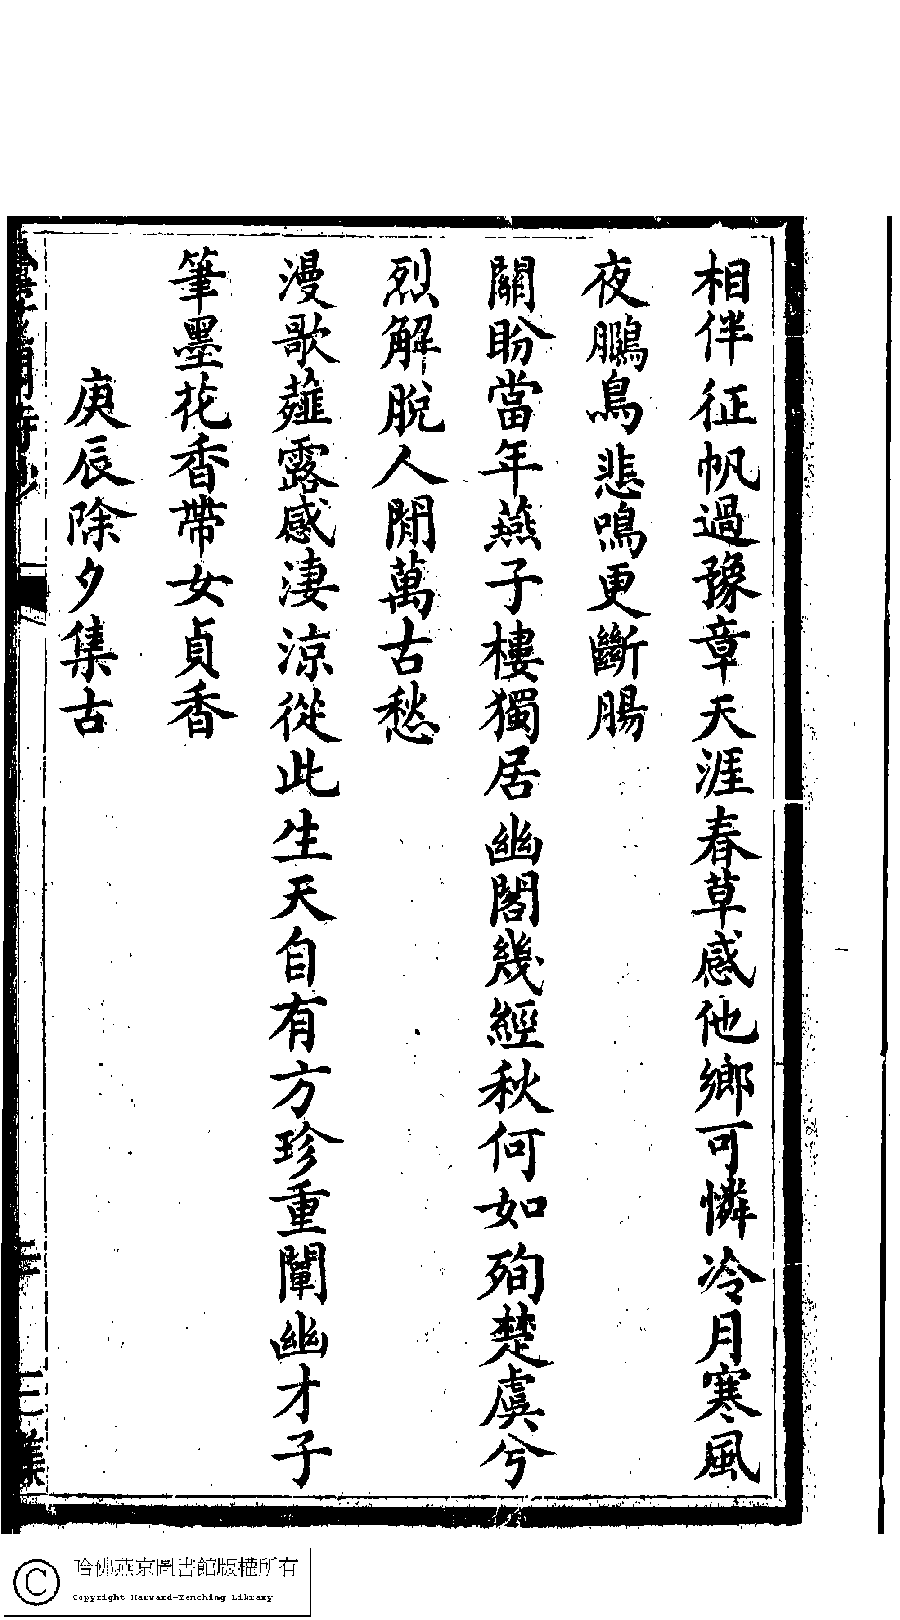 相伴征帆過豫章天涯春草感他鄉可憐冷月寒風
夜鵩鳥悲鳴更斷腸
關盼當年燕子樓獨居幽閣幾經秋何如殉楚虞兮
烈解脫人間萬古愁
漫歌薤露感淒涼從此生天自有方珍重闡幽才子
筆墨花香帶女貞香
庚辰除夕集古
哈佛燕京圖書館版權所有
Copyright Harvard-Yenching Library